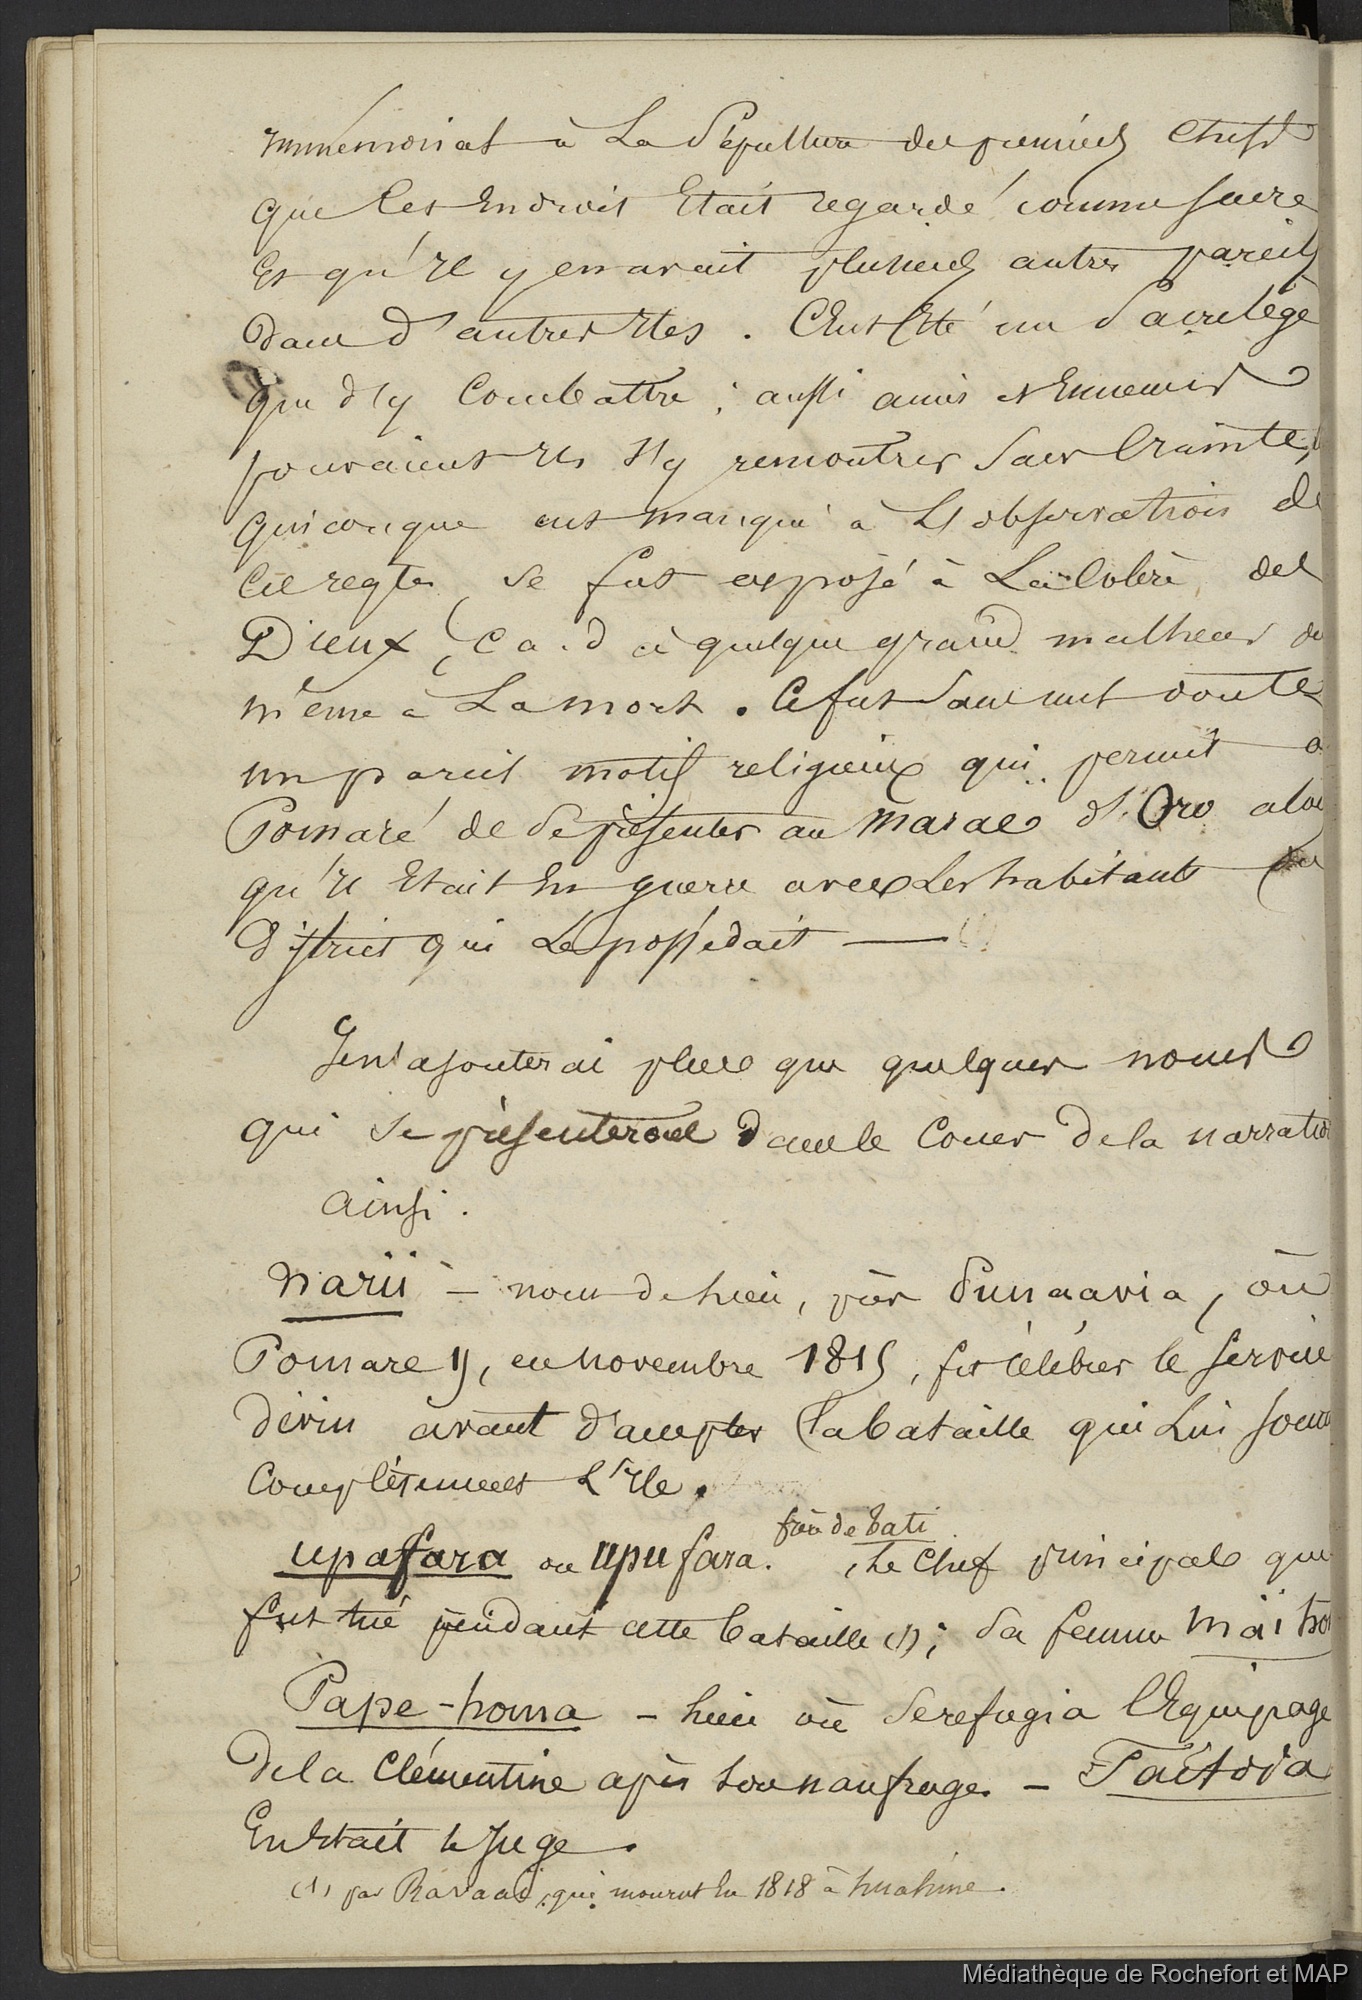 immémorial à La Sépulture des premiers Chefs
que Cet Endroit Etait regardé comme sacré
Et qu'Il y en avait plusieurs autres pareils
dans d'autres Iles. C'eut Eté un Sacrilège
que d'y Combattre; aussi amis et Ennemis
pouvaient Ils s'y rencontrer Sans Crainte,
Quiconque eut manqué à L'observation de
Ces regles se fut exposé à La Colère des
Dieux, C. a. d à quelque grand malheur ou
même à La mort. Ce fut Sans nul doute
un pareil motif religieux qui permit à
Pomaré de Se présenter au Marae d'Oro alors
qu'Il Etait En guerre avec Les habitants du
District qui Le possédait — (1)
Je n'ajouterai plus que quelques noms
qui se présenteront dans le Cours de la narration
ainsi.
Narii – nom de lieu, près Punaavia, où
Pomare II, en novembre 1815, fit célébrer le service
divin avant d'accepter la bataille qui Lui soumit
Complètement L'Ile.
père de Tati
Upafara ou upufara. , Le Chef principal qui
fut tué pendant cette bataille (1); Sa femme Maï hoï
Pape-homa – lieu où Se refugia l'Equipage
de la Clémentine après son naufrage. – Taïtova
En Etait le Juge.
(1) par Ravaai, qui mourut En 1818 à huahine.
Médiathèque de Rochefort et MAP